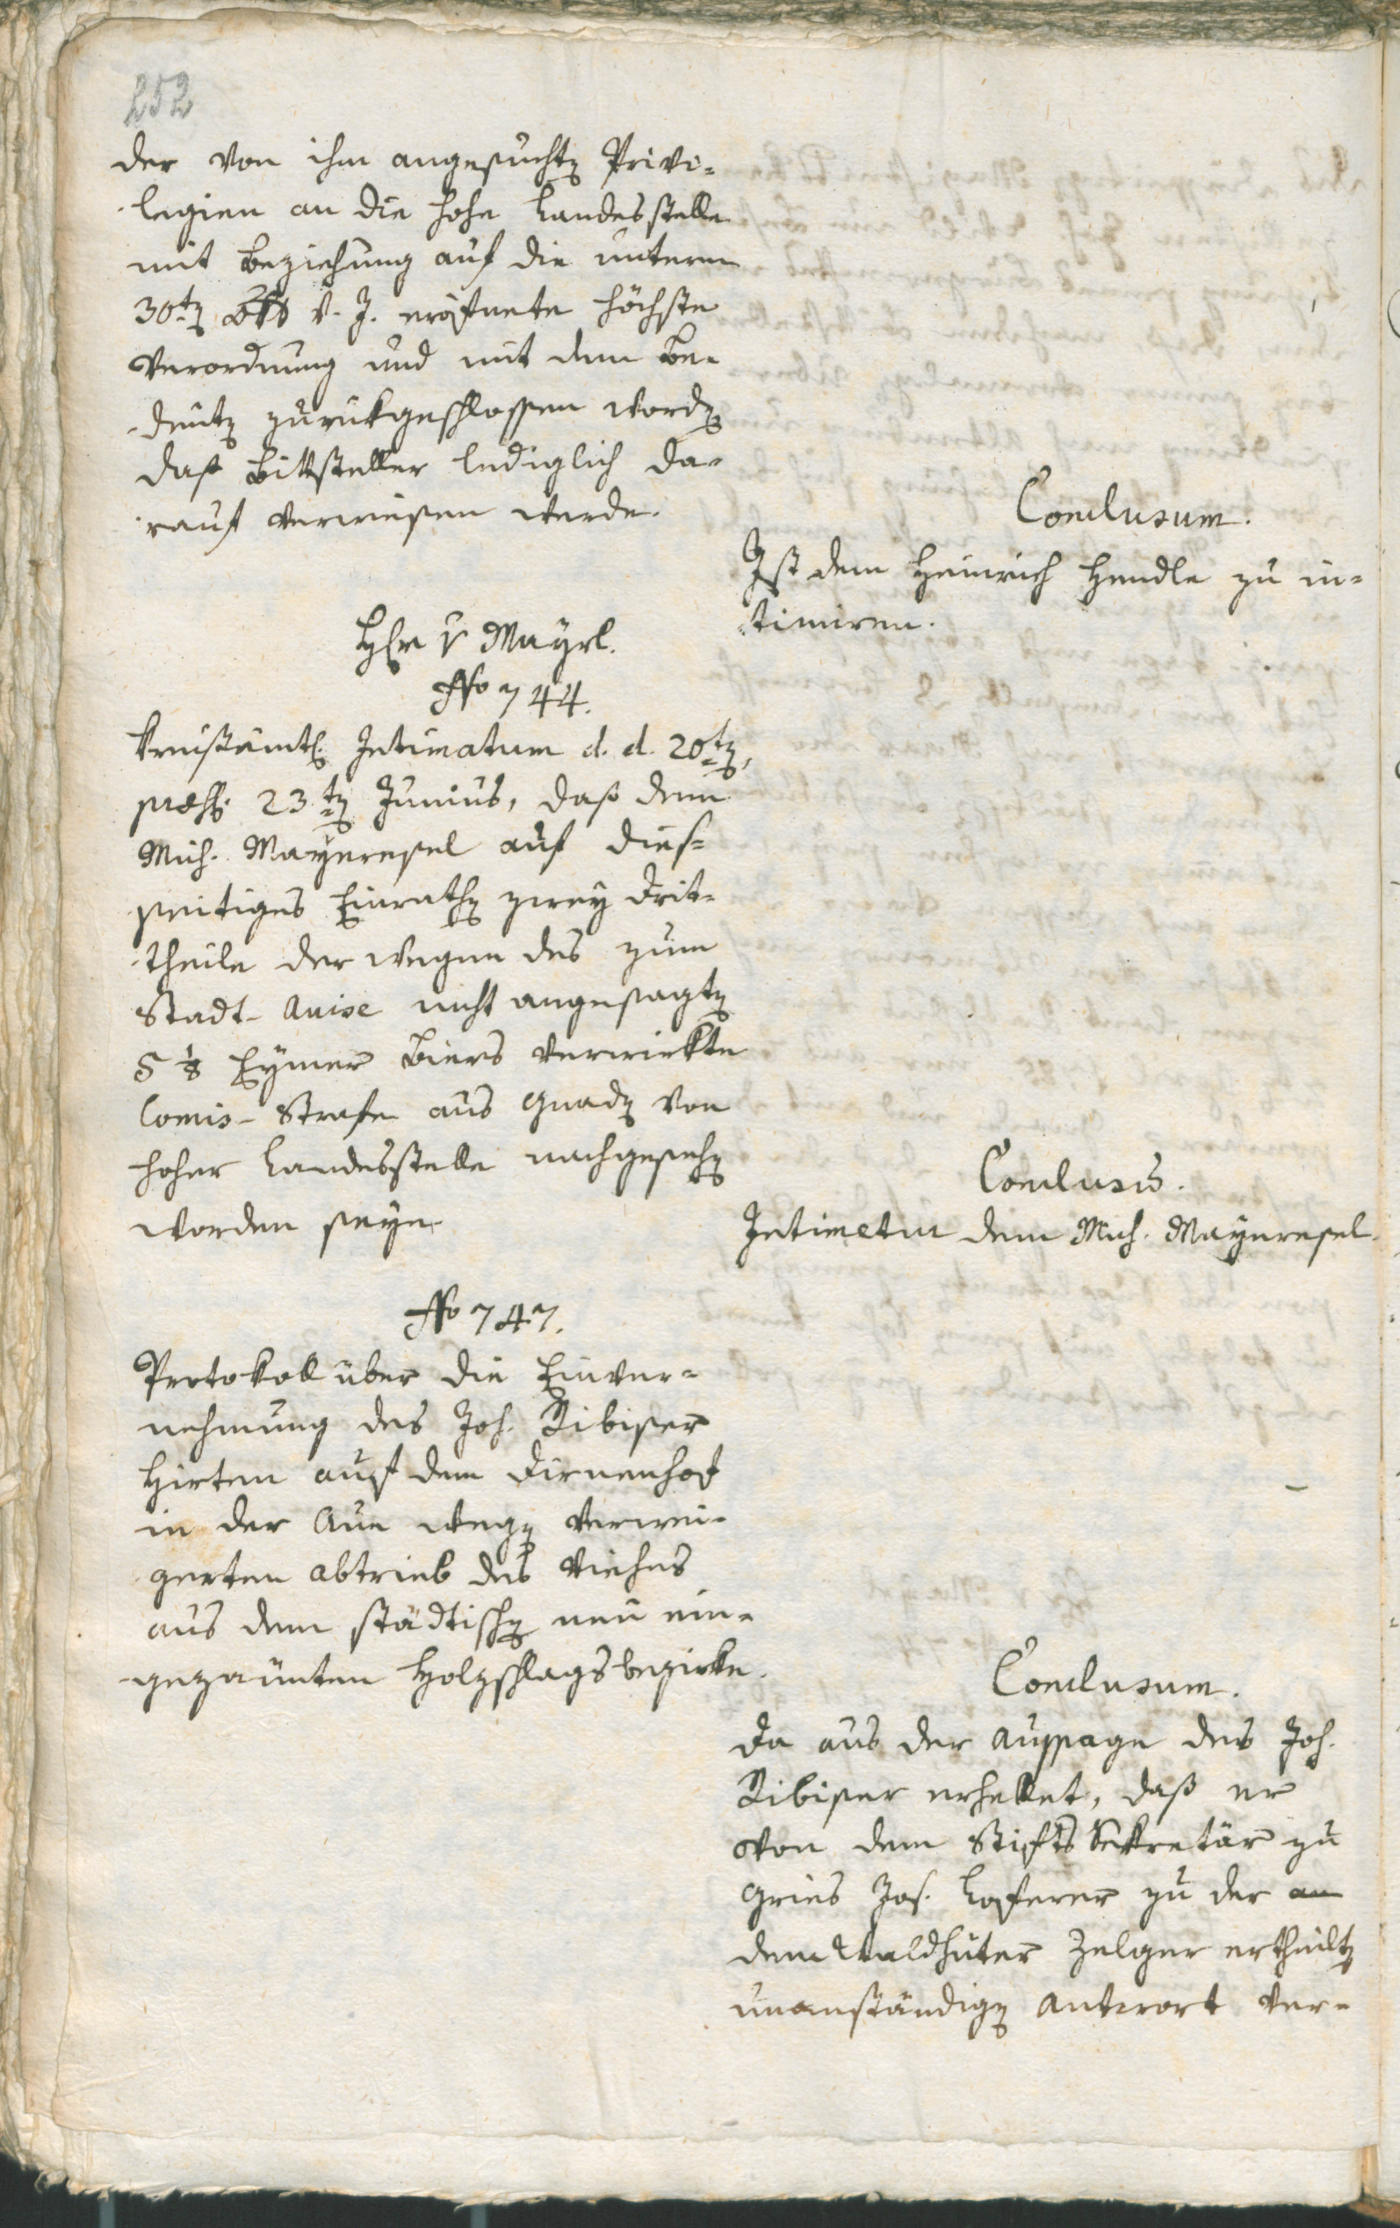 252
der von ihm angesuchten Privi-
legien an die hohe Landesstelle
mit Beziehung auf die unterm
30ten v. J. eröfnete höchste
Verordnung und mit dem Be-
deuten zurükgeschlossen worden
daß Bittsteller lediglich da-
rauf verwiesen werde.
Conclusum.
Ist dem Heinrich Hendle zu in-
timiren.
Herr v Mayrl.
No 744.
Kreisämtl. Intimatum d. d. 20ten,
præs. 23ten Junius, daß dem
Mich. Mayeresel auf dies-
seitiges Einrathen zwey Drit-
theile der wegen des zum
Stadt- Auise nicht angesagten
5 1/8 Eymer Biers verwirkte
Comis- Strafe aus Gnaden von
hoher Landesstelle nachgesehen
worden seyn.
Conclusum.
Intimetur dem Mich. Mayeresel.
No 747.
Protokoll über die Einver-
nehmung des Joh. Ribiser
Hirten auf dem Dirnenhof
in der Aue wegen verwei-
gerten Abtrieb des Viehes
aus dem städtischen neu ein-
gezäunten Holzschlagsbezirke.
Conclusum.
Da aus der Aussage des Joh.
Ribiser erhellet, daß er
von dem Stifts Sekretär zu
Gries Jos. Laserer zu der an
dem Waldhüter Zelger ertheilten
unanständigen Antwort ver-